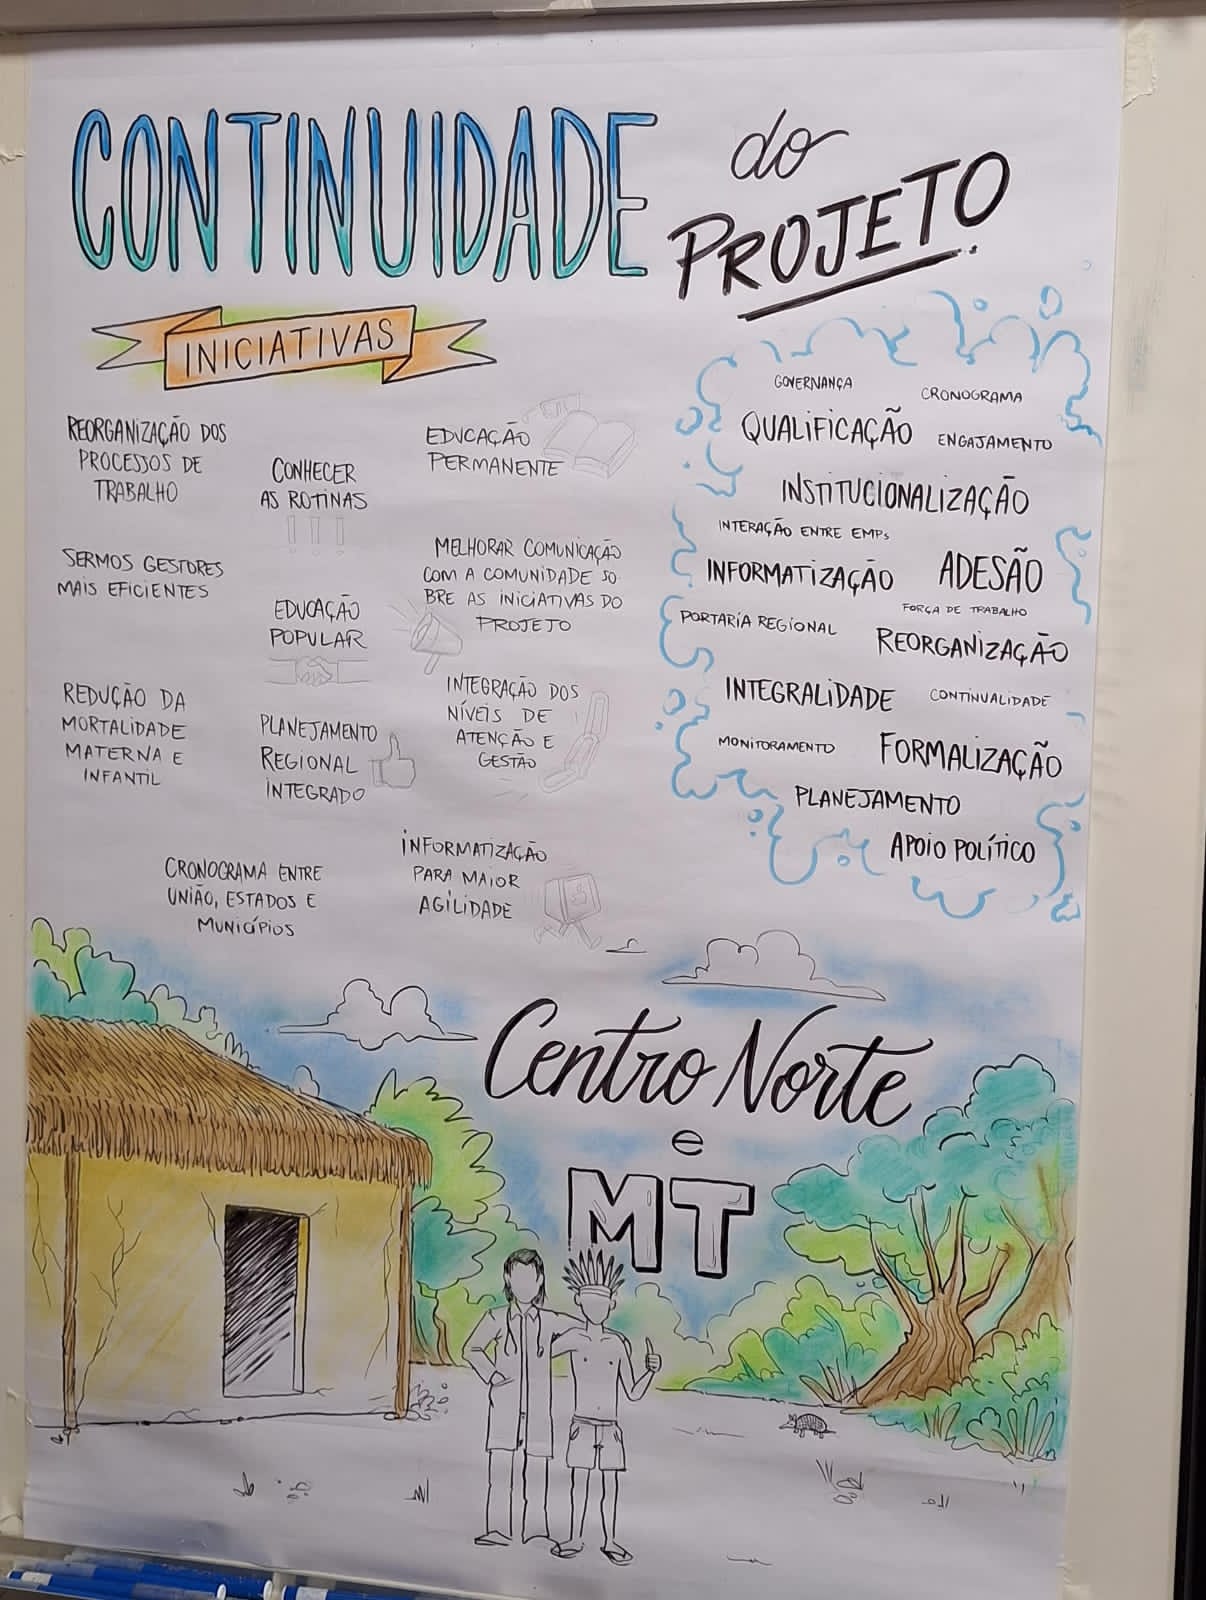 CONTINUIDADE
do
PROJETO
INICIATIVAS
REORGANIZAÇÃO DOS
PROCESSOS DE
TRABALHO
CONHECER
AS ROTINAS
!!!
EDUCAÇÃO
PERMANENTE
SERMOS GESTORES
MAIS EFICIENTES
EDUCAÇÃO
POPULAR
MELHORAR COMUNICAÇÃO
COM A COMUNIDADE SO
BRE AS INICIATIVAS DO
PROJETO
REDUÇÃO DA
MORTALIDADE
MATERNA E
INFANTIL
PLANEJAMENTO
REGIONAL
INTEGRADO
INTEGRAÇÃO DOS
NÍVEIS DE
ATENÇÃO E
GESTÃO
CRONOGRAMA ENTRE
UNIÃO, ESTADOS E
MUNICÍPIOS
INFORMATIZAÇÃO
PARA MAIOR
AGILIDADE
GOVERNANÇA
CRONOGRAMA
QUALIFICAÇÃO
ENGAJAMENTO
INSTITUCIONALIZAÇÃO
INTERAÇÃO ENTRE EMPs
INFORMATIZAÇÃO
ADESÃO
FORÇA DE TRABALHO
PORTARIA REGIONAL
REORGANIZAÇÃO
INTEGRALIDADE
CONTINUALIDADE
MONITORAMENTO
FORMALIZAÇÃO
PLANEJAMENTO
APOIO POLÍTICO
Centro Norte
e
MT